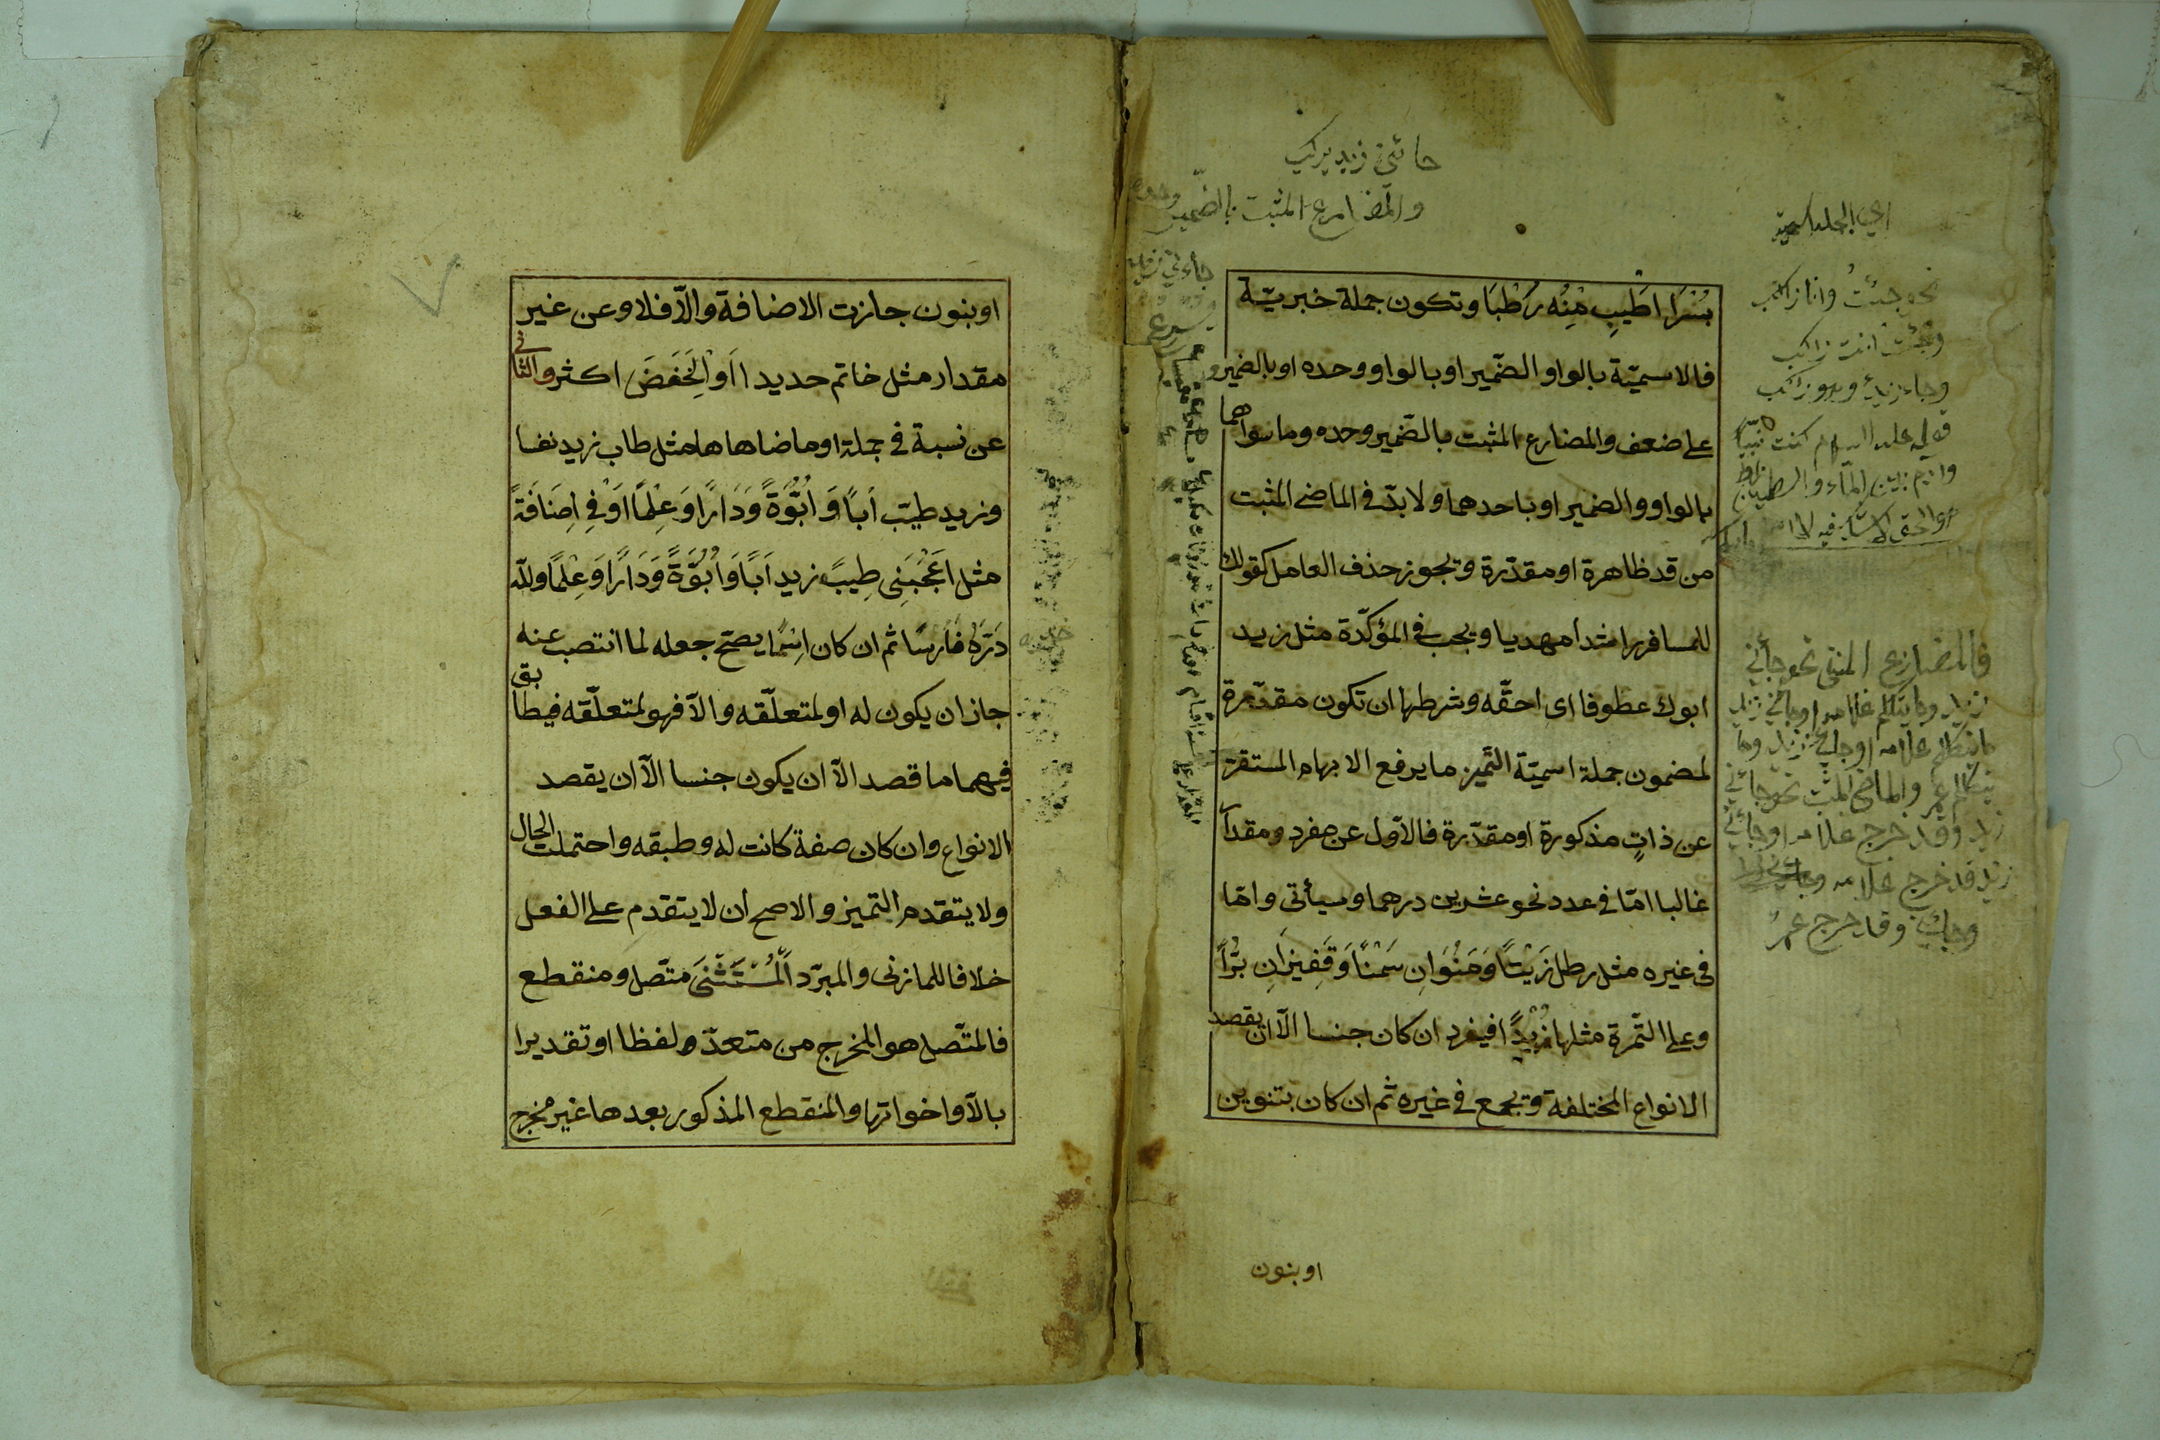 جائني زيد يركب
والمضارع المثبت بالضمير وحده
جاءني زيد
اي الجملة اسمية
نحو جئت وانا راكب
وجئت انت راكب
وجاء زيد وهو راكب
قوله عليه السلام كنت نبيا
وادم بين الماء والطين
بسرا اطيب منه رطبا وتكون جملة خبرية
فالاسمية بالواو الضمير او بالواو وحده او بالضمير و
على ضعف والمضارع المثبت بالضمير وحده وما سواهما
بالواو والضمير او باحدهما ولا بد في الماضي المثبت
من قد ظاهرة او مقدرة ويجوز حذف العامل كقولك
للمسافر راشدا مهديا ويجب في المؤكدة مثل زيد
ابوك عطوفا اى احقه وشرطها ان تكون مقدرة
لمضمون جملة اسمية التميز ما يرفع الابهام المستقر
عن ذات مذكورة او مقدرة فالاول عن مفرد ومقدا
غالبا اما في عدد نحو عشرين درهما وسيأتى واما
فى غيره مثل رطل زيتا ومنوان سمنا وقفيزان برا
وعلى التمرة مثلها زبدا فيفرد ان كان جنسا الا ان يقصد
الانواع المختلفة ويجمع فى غيره ثم ان كان بتنوين
فالمضارع المنفي نحو جائني
زيد وما يتكلم غلامه او جائني زيد
ما يتكلم غلامه او جائني زيد وما
يتكلم عمر والماضي المثبت نحو جائني
زيد وقد خرج غلامه او جائني
زيد قد خرج غلامه
وقد خرج عمر
او بنون
او بنون جازت الاضافة والا فلا وعن غير
مقدار مثل خاتم حديدا او الخفض اكثر والثانى
عن نسبة فى جملة او ما ضاهاها مثل طاب زيد نفسا
وزيد طيب ابا وابوة ودارا وعلما او فى اضافة
مثل اعجبنى طيب زيد ابا وابوة ودارا وعلما ولله
دره فارسا ثم ان كان اسما يصح جعله لما انتصب عنه
جاز ان يكون له او لمتعلقه والا فهو لمتعلقه فيطابق
فيهما ما قصد الا ان يكون جنسا الا ان يقصد
الانواع وان كان صفة كانت له وطبقه واحتملت الحال
ولا يتقدم التميز والاصح ان لا يتقدم على الفعل
خلافا للمازنى والمبرد المستثنى متصل ومنقطع
فالمتصل هو المخرج من متعدد لفظا او تقديرا
بالا واخواتها والمنقطع المذكور بعدها غير مخرج